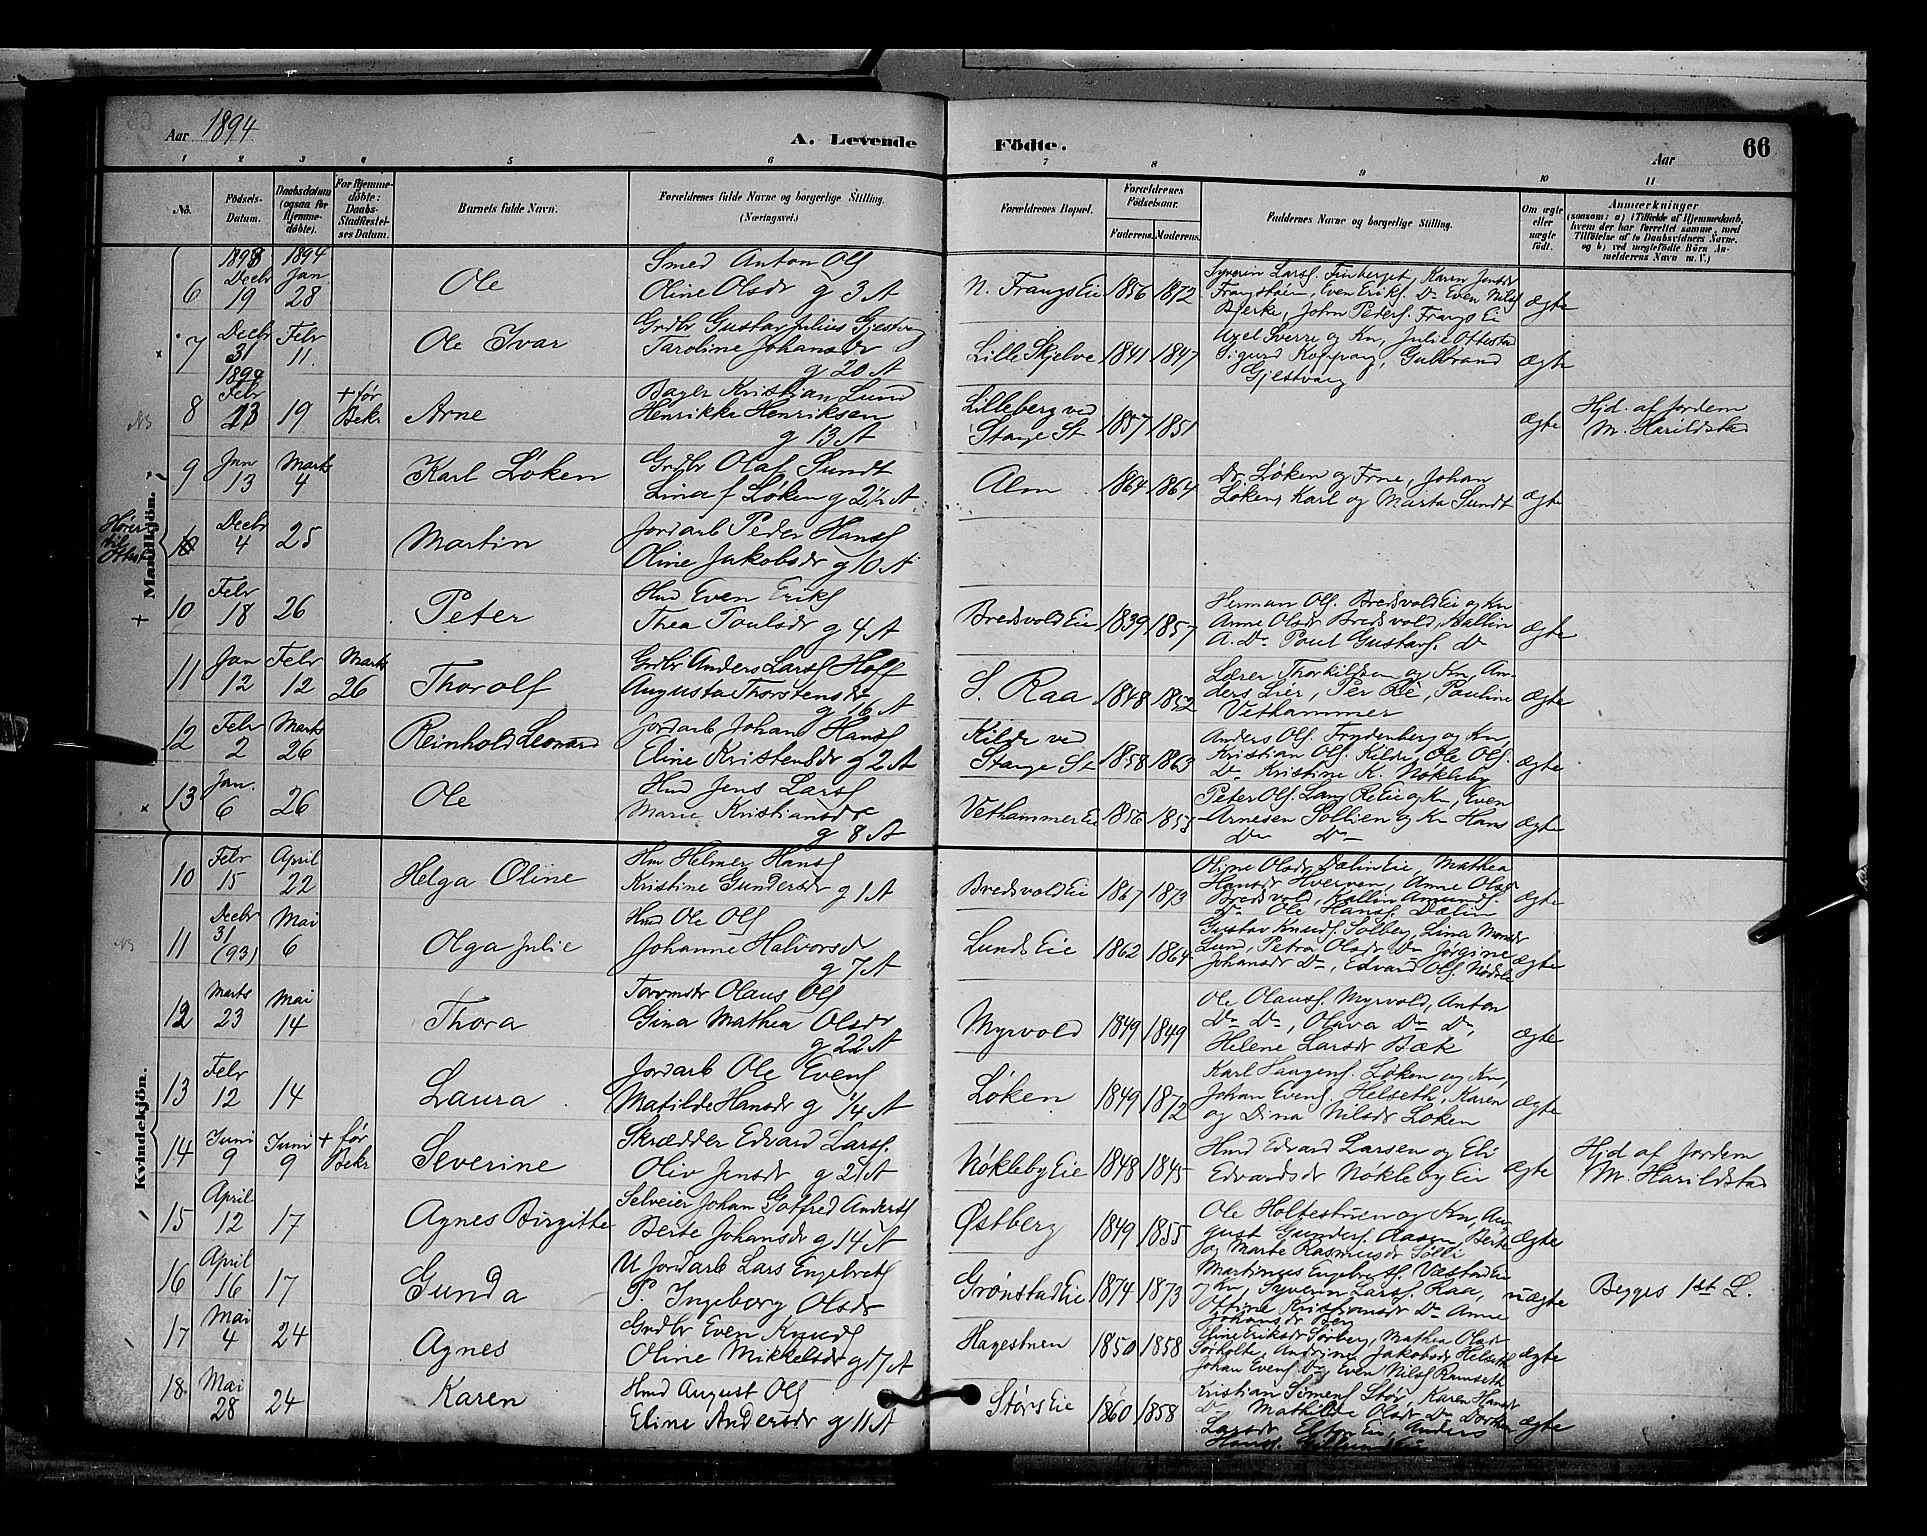 Aar 1894
A. Levende
Födte.
Aar
66
1 2 3 4 5 6 7 8 9 10 11
No.
Födsels-Datum.
Daabsdatum (ogsaa for hjemme-döbte).
For Hjemme-döbte: Daabs-Stadfæstel-ses Datum.
Barnets fulde Navn.
Forældrenes fulde Navne og borgerlige Stilling. (Næringsvei.)
Forældrenes Bopæl.
Forældrenes Födselsaar.
Faderens. Moderens.
Faddernes Navne og borgerlige Stilling.
Om ægte eller uægte födt.
Anmærkninger
(saasom: a) i Tilfælde af Hjemmedaab, hvem der har forrettet samme, med Tilföielse af to Daabsvidners Navne, og b) ved uægtefödte Börn An-melderens Navn m. V.)
Mandkjön.
6 1893 Decbr 19 1894 Jan 28 Ole
Smed Anton Ols
Oline Olsdr g 3 A
N. Frangs Eie 1856 1872
Syverin Lars. Finberget, Karen Jensdr
Frangstuen, Even Eriks. Do Even Nils
Bjerke, John Peders. Frangs Ei
ægte
x 7 Decbr 31 Febr 11. Ole Ivar
Grdbr Gustav Julius Gjestvang
Taroline Johansdr
g 20 A
Lille Skjelve 1841 1847
Axel Sverre og Kn, Julie Ottestad
Sigurd Koppang, Gulbrand
Gjestvang
ægte
NB 8 1894 Febr 13 19 + før Bekr Arne
Bager Kristian Lund
Henrikke Henriksen
g 13 A
Lilleberg ved
Stange St 1857 1851
ægte
Hjd. af Jordem
M. Harildstad
9 Jan 13 Marts 4 Karl Løken
Grdbr Olaf Sundt
Lina f Løken g 2½ A
Alm 1864 1864
Dr Løken og Frue, Johan
Løken, Karl og Marta Sundt
ægte
Hører til Ottest
Decbr 4 25 Martin
Jordarb Peder Hans
Oline Jakobsdr g 10 A
+ 10 Febr 18 26 Peter
Hmd Even Eriks
Thea Poulsdr g 4 A
Bredsvold Eie 1839 1857
Herman Ols. Bredsvold Eie og Kn
Anne Olsdr Bredsvold, Kallin
A. Do Paul Gustavs. Do
ægte
11 Jan 12 Febr 12 Marts 26 Thorolf
Grdbr Anders Lars Hoff
Augusta Thorstensdr
g 16 A
S. Raa 1848 1852
Lærer Thorkildsen og Kn, An-
ders Lier, Per Lie, Pauline
Vethammer
ægte
12 Febr 2 Marts 26 Reinhold Leonard
Jordarb Johan Hans
Eline Kristensdr g 2 A
Kilde ved
Stange St 1858 1863
Anders Ols. Frydenberg og Kn,
Kristian Ols. Kilde, Ole Ols.
Do Kristine K. Nøkleby
ægte
x 13 Jan. 6 26 Ole
Hmd Jens Lars
Marie Kristiansdr
g 8 A
Vethammer Ei 1856 1853
Peter Ols. Lang Rei Eie og Kn, Even
Arnesen Sollien og Kn Hans
Do Do
ægte
Kvindekjön.
10 Febr 15 April 22 Helga Oline
Hm Helmer Hans
Kristine Gundersdr g 1 A
Bredsvold Eie 1867 1873
Oline Olsdr Dælin Eie Mathea
Hansdr Hverven, Anne Olsdr
Bredsvold, Kallin Amunds.
Do Ole Hans. Dælin
ægte
NB 11 Decbr 31 (93) Mai 6 Olga Julie
Hmd Ole Ols
Johanne Halvorsd
g 7 A
Lunds Eie 1862 1864
Gustav Knuds. Solberg, Lina Monsdr
Lund, Petra Olsdr Do Jørgine
Johansdr Do, Edvard Ols.
ægte
12 Marts 23 Mai 14 Thora
Tømmr Olaus Ols
Gina Mathea Olsdr
g 22 A
Myrvold 1849 1849
Ole Olaus. Myrvold, Anton
Do Do, Olava Do Do,
Helene Larsdr Bæk
ægte
13 Febr 12 14 Laura
Jordarb Ole Evens
Matilde Hansdr g ¼ A
Løken 1849 1872
Karl Haagens. Løken og Kn,
Johan Evens. Helseth, Karen
og Dina Nilsdr Løken
ægte
14 Juni 9 Juni 9 + før Bekr Severine
Skrædder Edvard Lars.
Oliv Jensdr g 21 A
Nøkleby Eie 1848 1845
Hmd Edvard Larsen og Eli
Edvardsdr Nøkleby Eie
ægte
Hjd af Jordem
M. Harildstad
15 April 12 17 Agnes Birgitte
Selveier Johan Gotfred Anders
Berte Johansdr g 14 A
Østberg 1849 1855
Ole Holtestuen og Kn, Au-
gust Gunders. Aasen, Berte
og Marte Rasmusdr Solli
ægte
16 April 16 17 Gunda
U Jordarb Lars Engebrets
P. Ingeborg Olsdr
Grønstad Eie 1874 1873
Martinus Engebrets. Væstad Eie
og Kn, Syverin Lars. Raa,
Ottine Kristiansdr Do Anne
Johansdr Berg
uægte
Begges 1st L.
17 Mai 4 24 Agnes
Grdbr Even Knuds
Oline Mikkelsdr g 17 A
Hagestuen 1850 1858
Eline Eriksdr Sørberg, Mathea Olsdr
Sørholte, Andrine Jakobsdr Helseth
Johan Evens. Do, Even Nils Ramseth
ægte
18. Mai 28 24 Karen
Hmd August Ols
Eline Andersdr g 11 A
Størs Eie 1860 1858
Kristian Simens. Stør, Karen Hansdr
Do Mathilde Olsdr Do Dorthe
Larsdr, Anders
Hans.
ægte